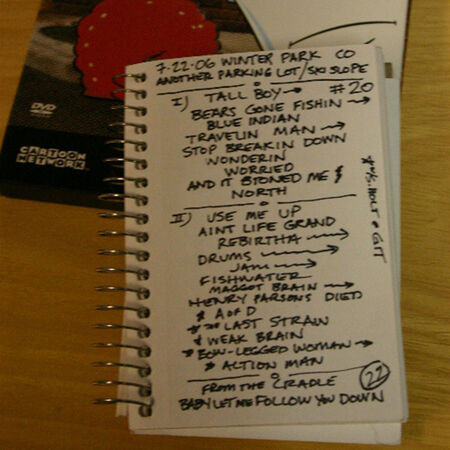 DVD
CARTOON
NETWORK
7-22-06 WINTER PARK CO
ANOTHER PARKING LOT/SKI SLOPE
I) TALL BOY → #20
BEARS GONE FISHIN →
BLUE INDIAN
TRAVELIN MAN →
STOP BREAKIN DOWN
WONDERIN
WORRIED
AND IT STONED ME $
NORTH
$ W/S. HOLT • GIT
II) USE ME UP
AINT LIFE GRAND
REBIRTHA →
DRUMS →
JAM →
FISHWATER
MAGGOT BRAIN →
HENRY PARSONS DIED
$ A OF D
LAST STRAW
WEAK BRAIN
BOW-LEGGED WOMAN →
ACTION MAN
FROM THE CRADLE 22
BABY LET ME FOLLOW YOU DOWN